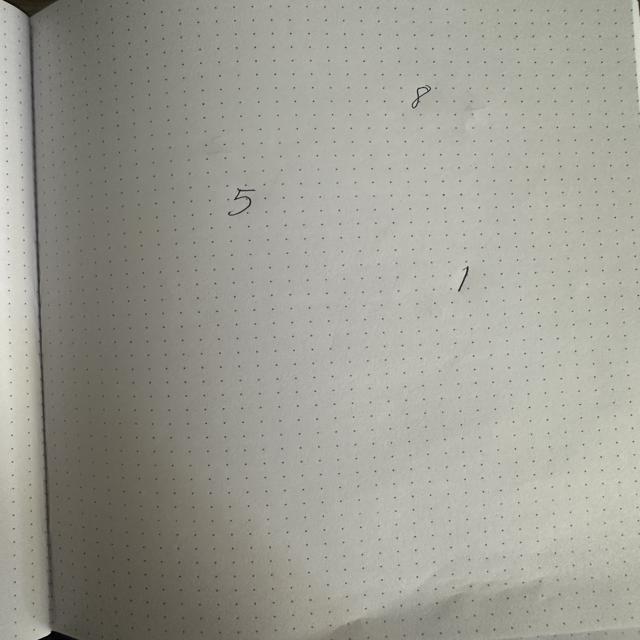 8
5
1